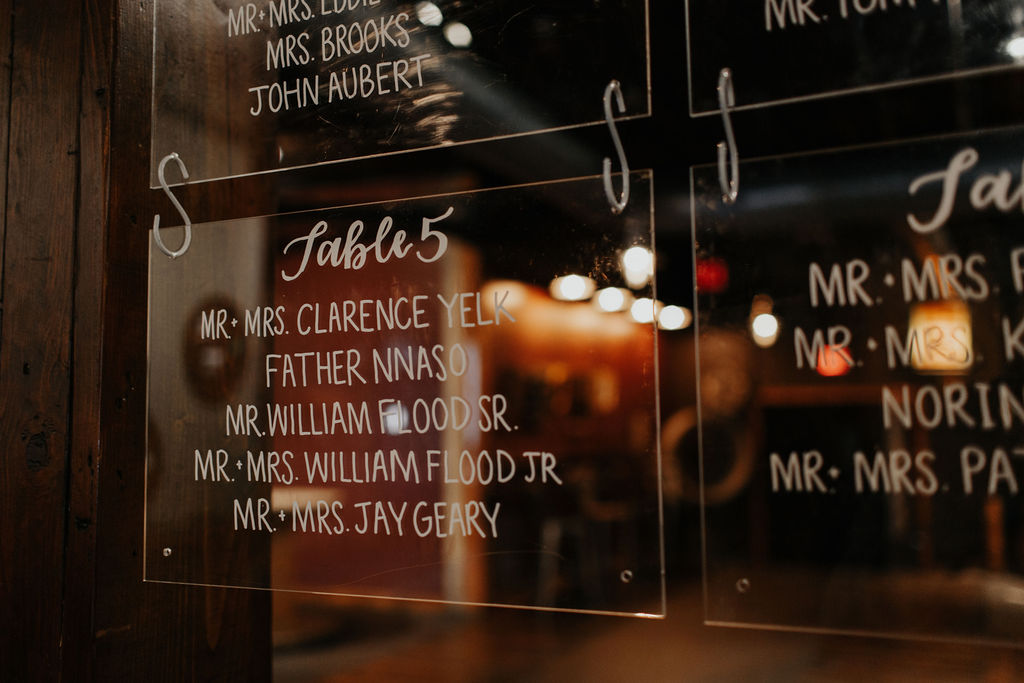 MR.+MRS. EDDIE
MRS. BROOKS
JOHN AUBERT
MR. TOM
Table 5
MR.+ MRS. CLARENCE YELK
FATHER NNASO
MR. WILLIAM FLOOD SR.
MR.+MRS. WILLIAM FLOOD JR
MR.+MRS. JAY GEARY
MR.+MRS.
MR.+MRS. K
NORIN
MR.+ MRS. PAT